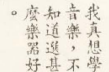 我真想學
音樂，不
知道進甚
麼樂器好
。